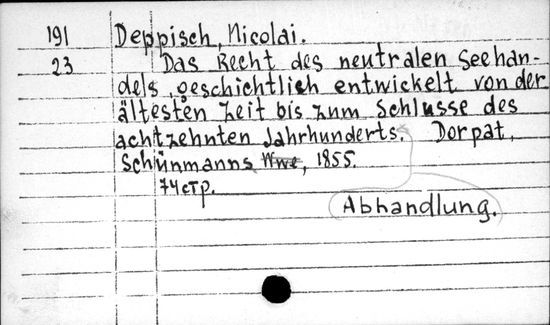 191 Deppisch, Nicolai.
23 Das Recht des neutralen Seehan-
dels, geschichtlich entwickelt von der
ältesten Zeit bis zum Schlusse des
achtzehnten Jahrhunderts. Dorpat,
Schünmanns Wwe, 1855.
74 стр.
Abhandlung.